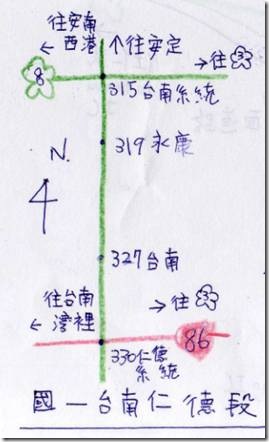 往安南
西港
←
↑往安定
→往
8
315台南系統
N.
319永康
327台南
往台南
灣裡
←
→往
86
330仁德
系統
國一台南仁德段